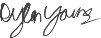 Dylan Young